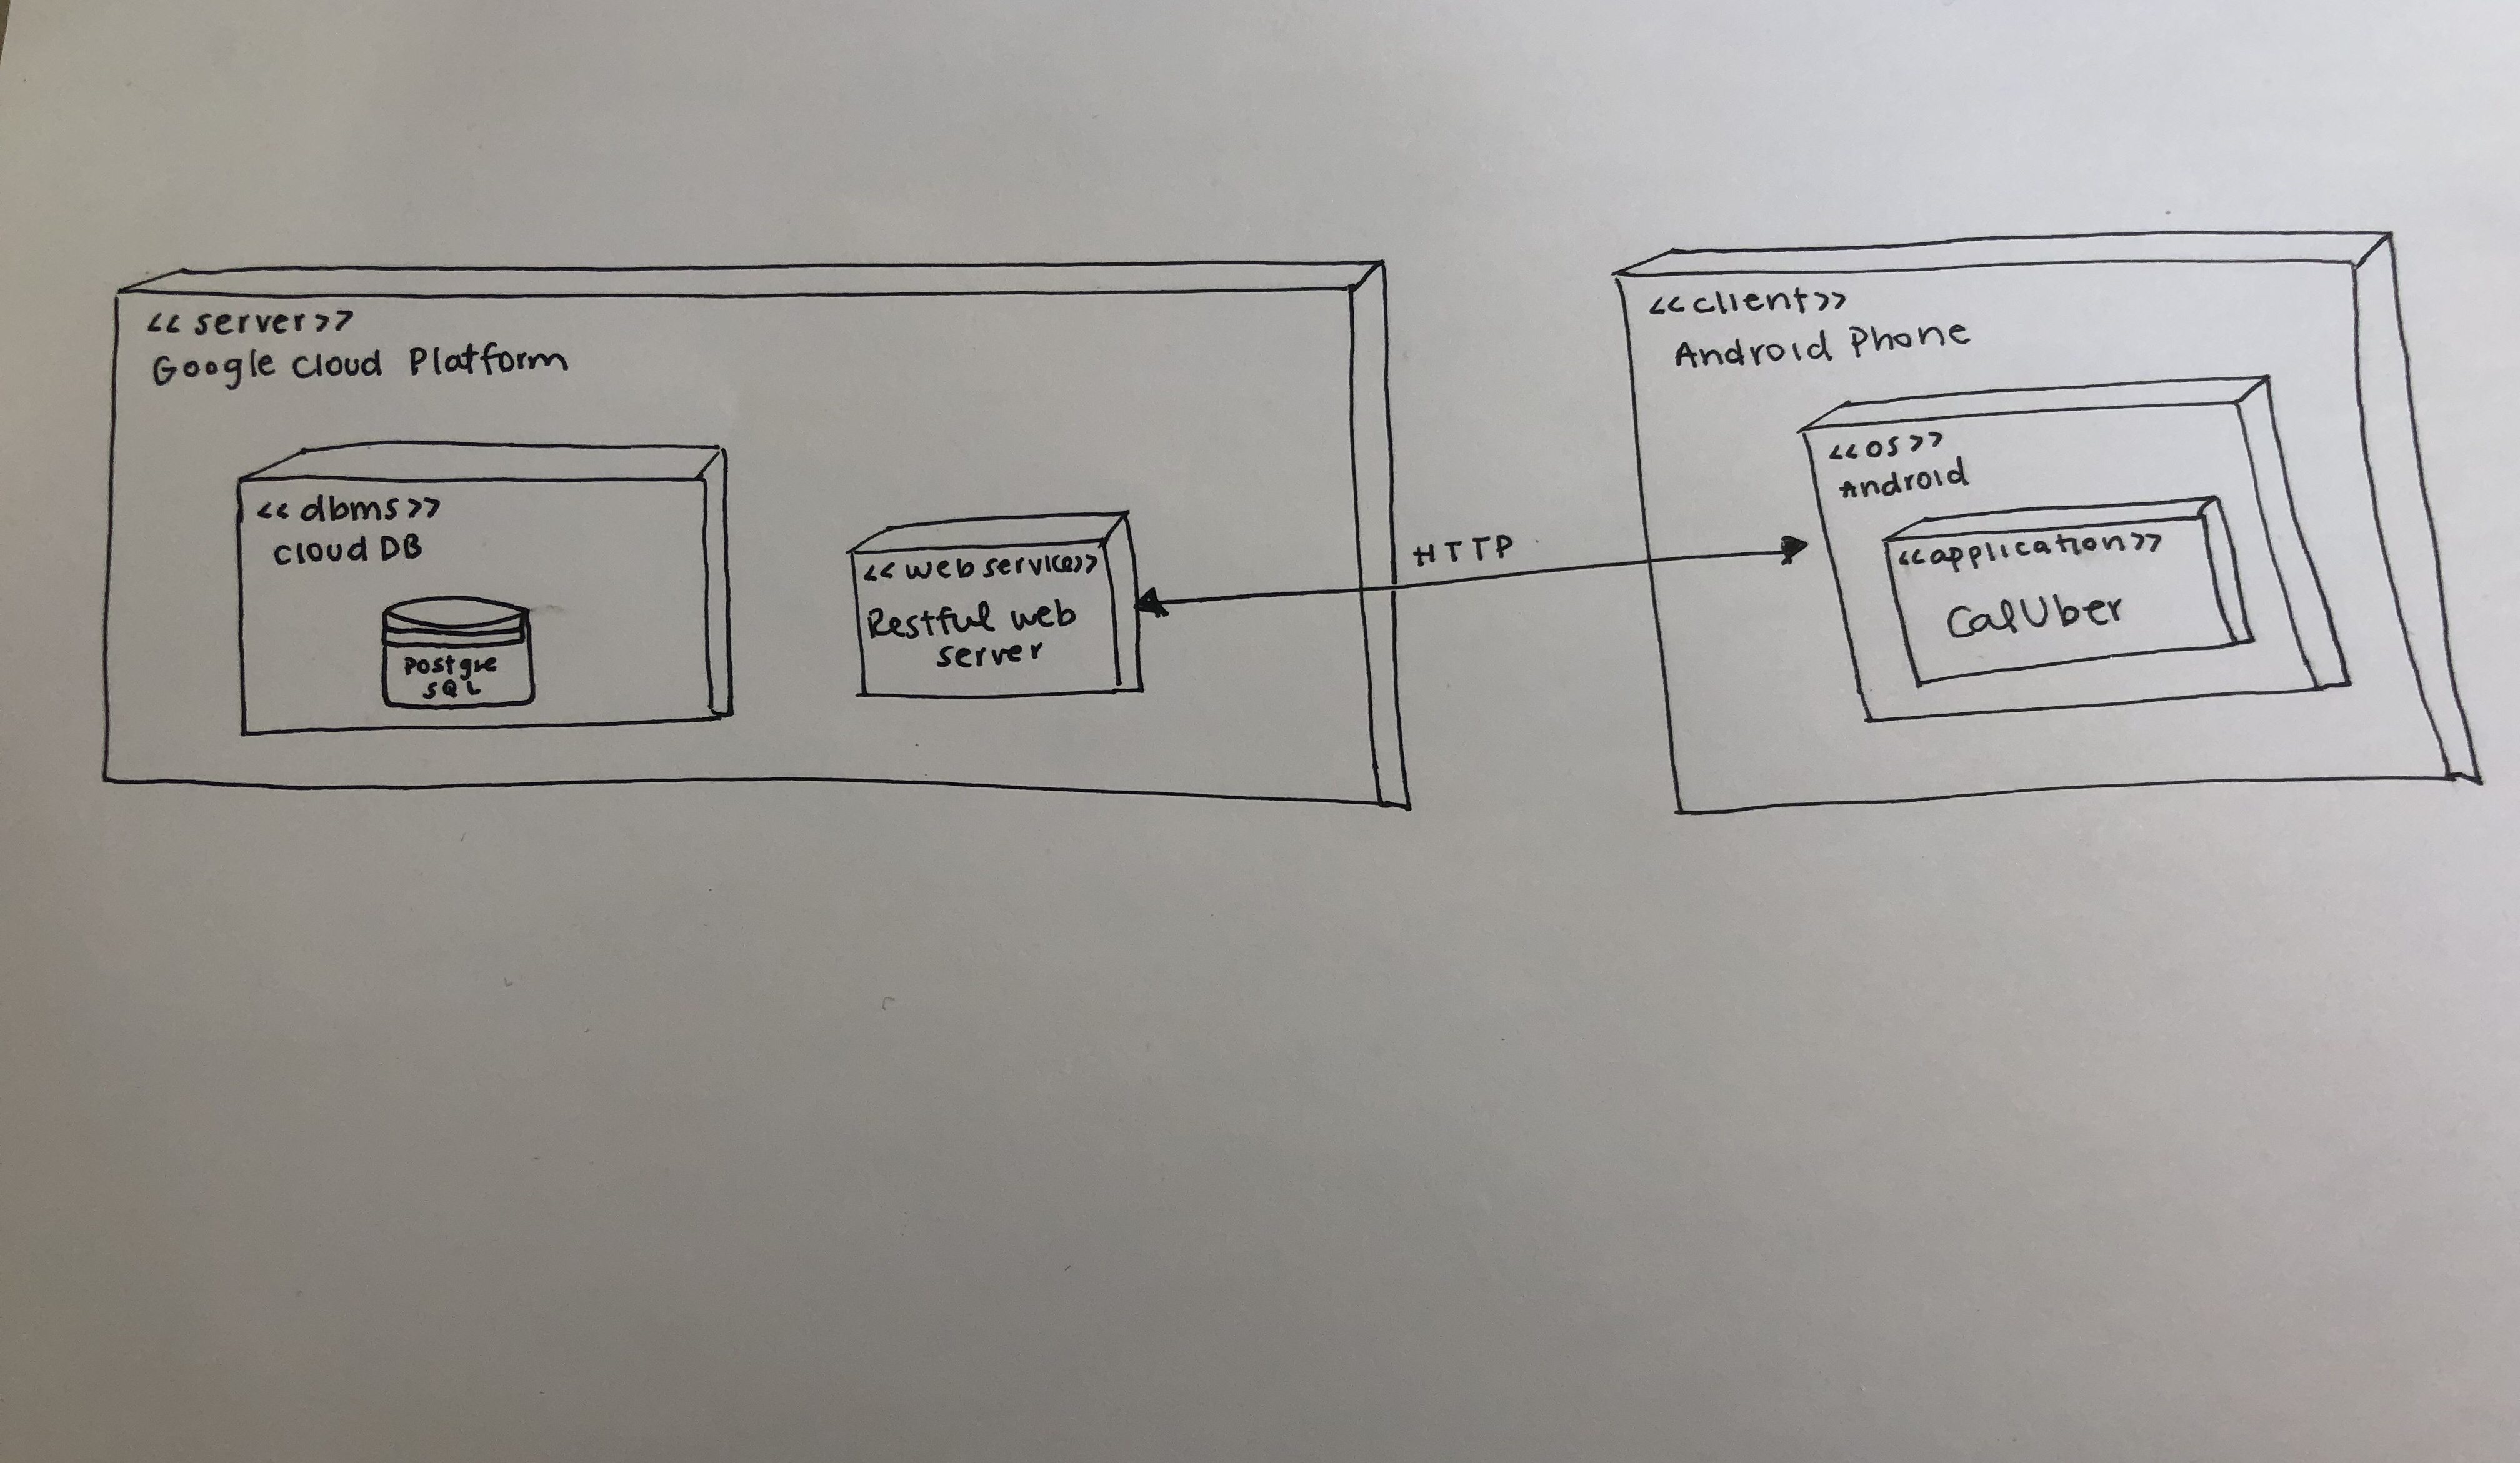 <<server>>
Google Cloud Platform
<<dbms>>
Cloud DB
Postgre
SQL
<<web service>>
Restful web
server
HTTP
<<client>>
Android Phone
<<os>>
Android
<<application>>
CalUber